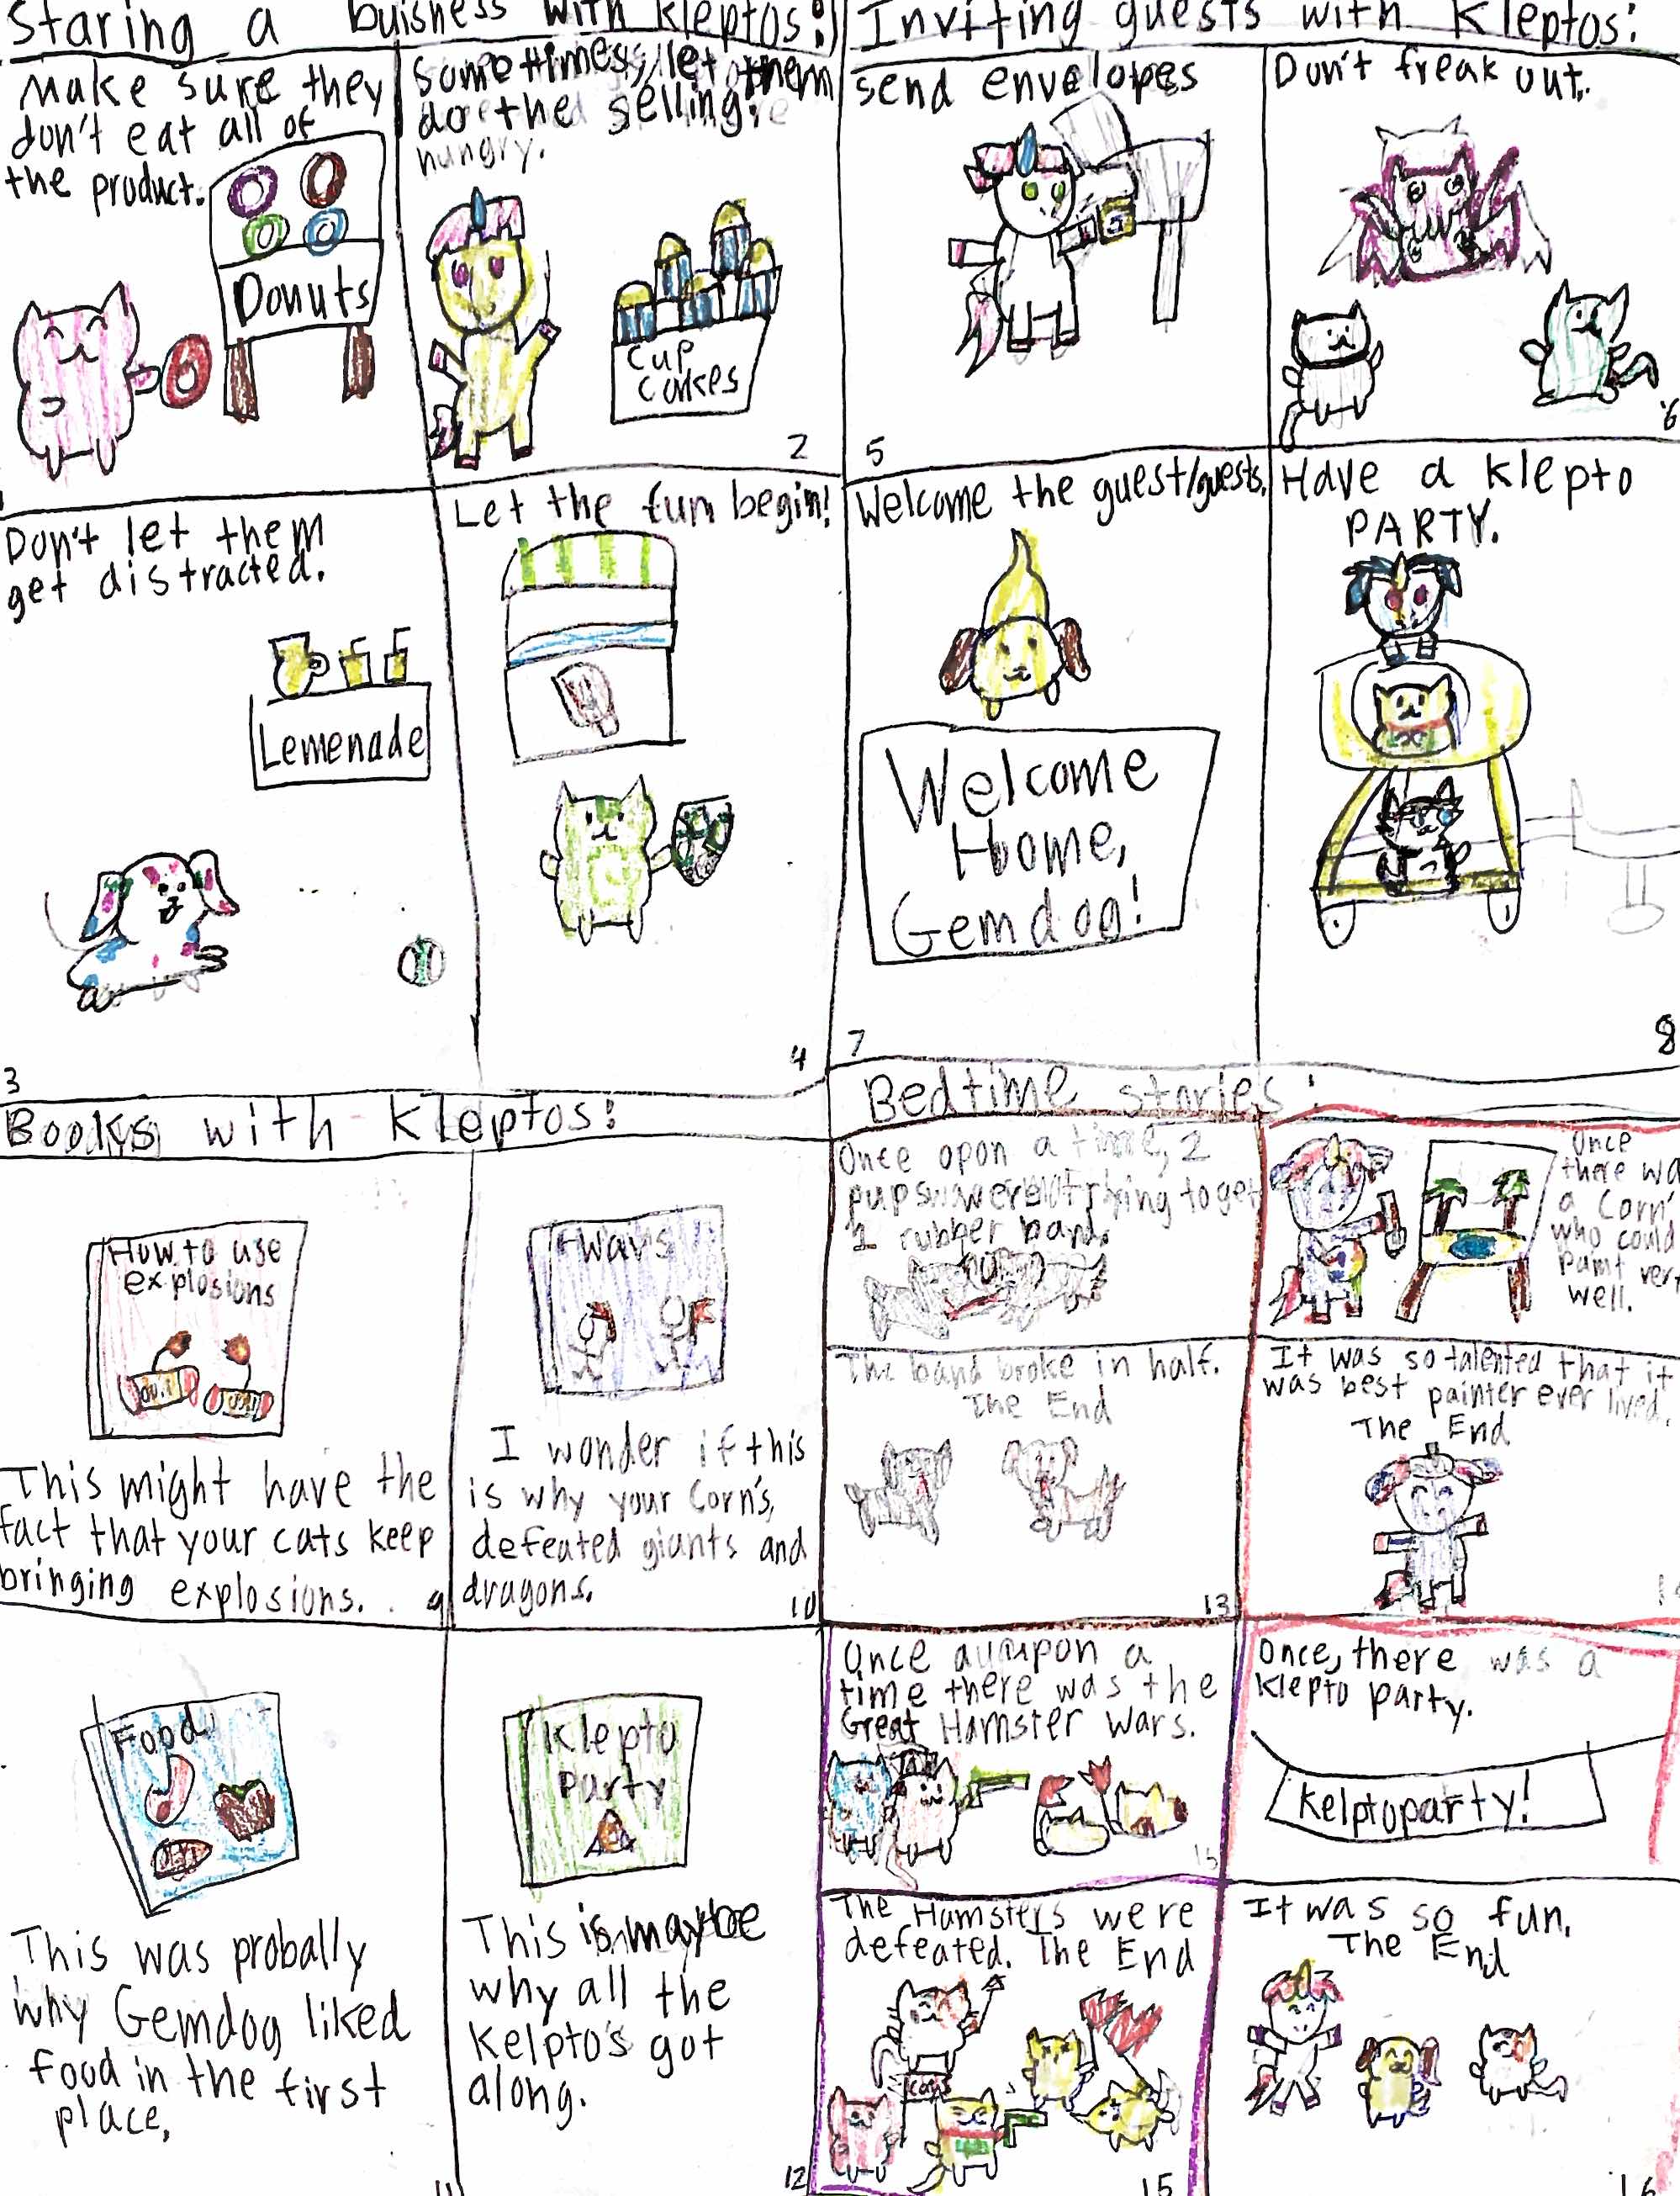 Staring a buisness with Kleptos:
Make sure they
don't eat all of
the product.
Donuts
Sometimes, let them
do the selling.
hungry.
Cup
Cakes
2
Don't let them
get distracted.
Lemenade
3
Let the fun begin!
4
Inviting guests with Kleptos:
send envelopes
5
Don't freak out.
6
Welcome the guest/guests.
Welcome
Home,
Gemdog!
7
Have a klepto
PARTY.
8
Books with Kleptos:
How to use
explosions
This might have the
fact that your cats keep
bringing explosions.
9
Wars
I wonder if this
is why your Corn's,
defeated giants and
dragons.
10
Food
This was probally
why Gemdog liked
food in the first
place,
11
Klepto
Party
This is maybe
why all the
Kelpto's got
along.
12
Bedtime stories:
Once opon a time, 2
pups trying to get
1 rubber band.
The band broke in half.
The End
13
Once
there wa
a Corn
who could
paint very
well.
It was so talented that it
was best painter ever lived.
The End
Once upon a
time there was the
Great Hamster Wars.
15
The Hamsters were
defeated. The End
Cats
15
Once, there was a
Klepto party.
Kelptoparty!
It was so fun.
The End
16